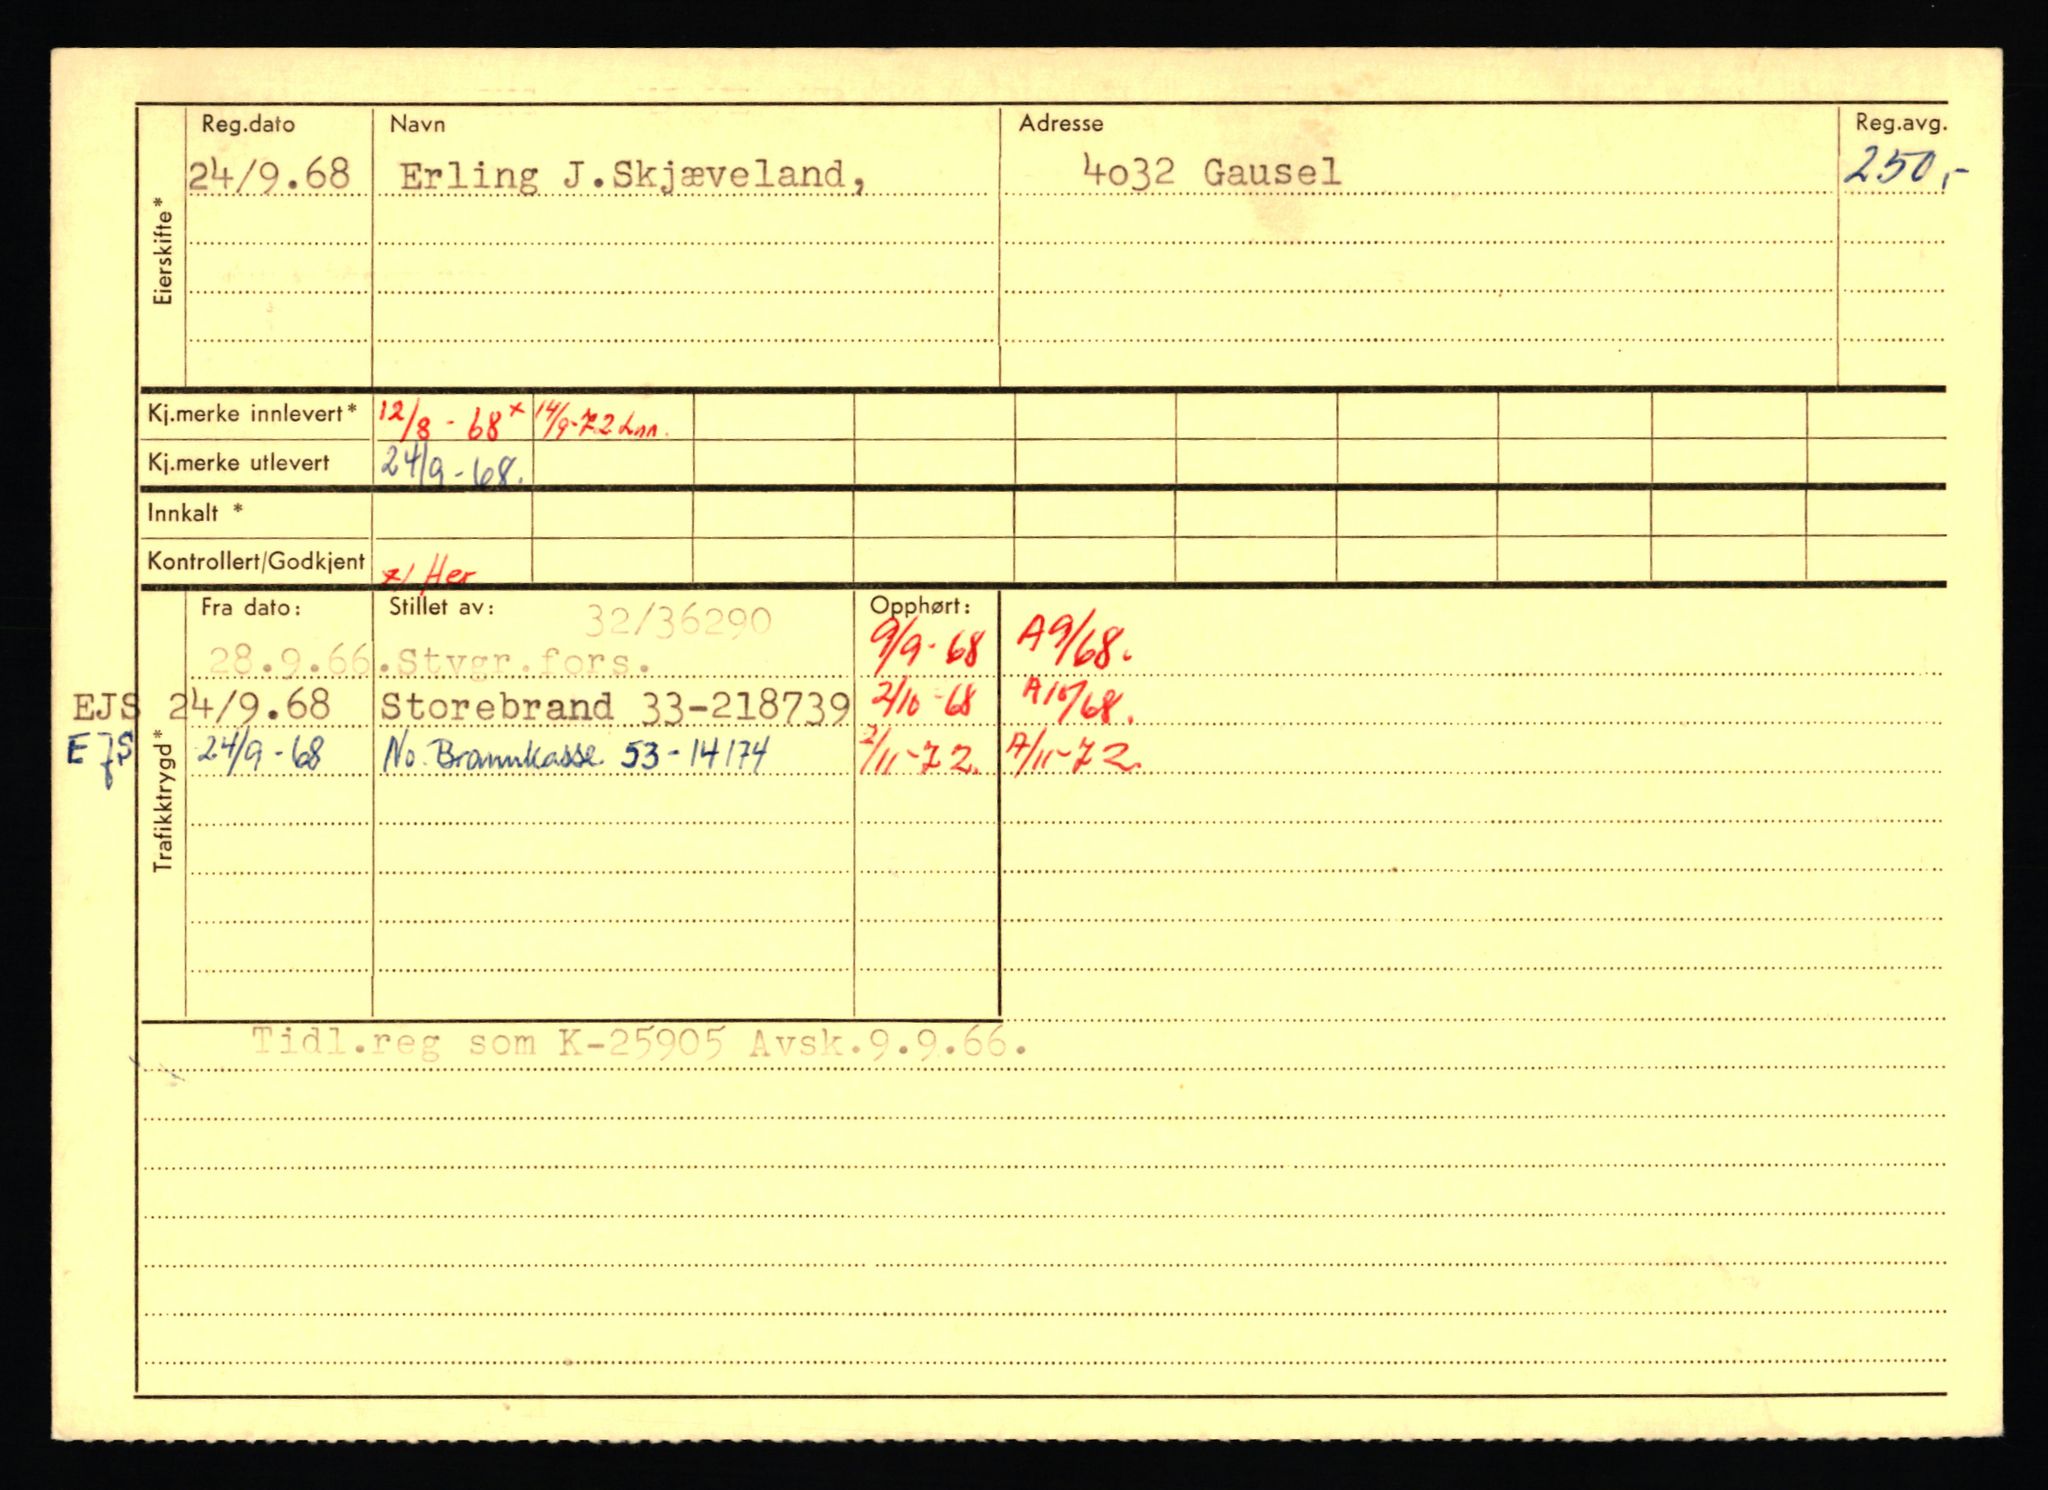 Reg.dato Navn Adresse Reg.avg.
24/9.68 Erling J.Skjæveland, 4032 Gausel 250,-
Eierskifte*
Kj.merke innlevert* 12/8 - 68 x 14/9-72 Lnn.
Kj.merke utlevert 24/9-68.
Innkalt *
Kontrollert/Godkjent x/ Her
Fra dato: Stillet av: 32/36290 Opphørt:
28.9.66. Stvgr.fors. 9/9-68 A9/68.
EJS 24/9.68 Storebrand 33-218739 2/10-68 A10/68.
EJS 24/9-68 No. Brannkasse. 53-14174 2/11-72. A/11-72.
Trafikktrygd*
Tidl.reg som K-25905 Avsk.9.9.66.